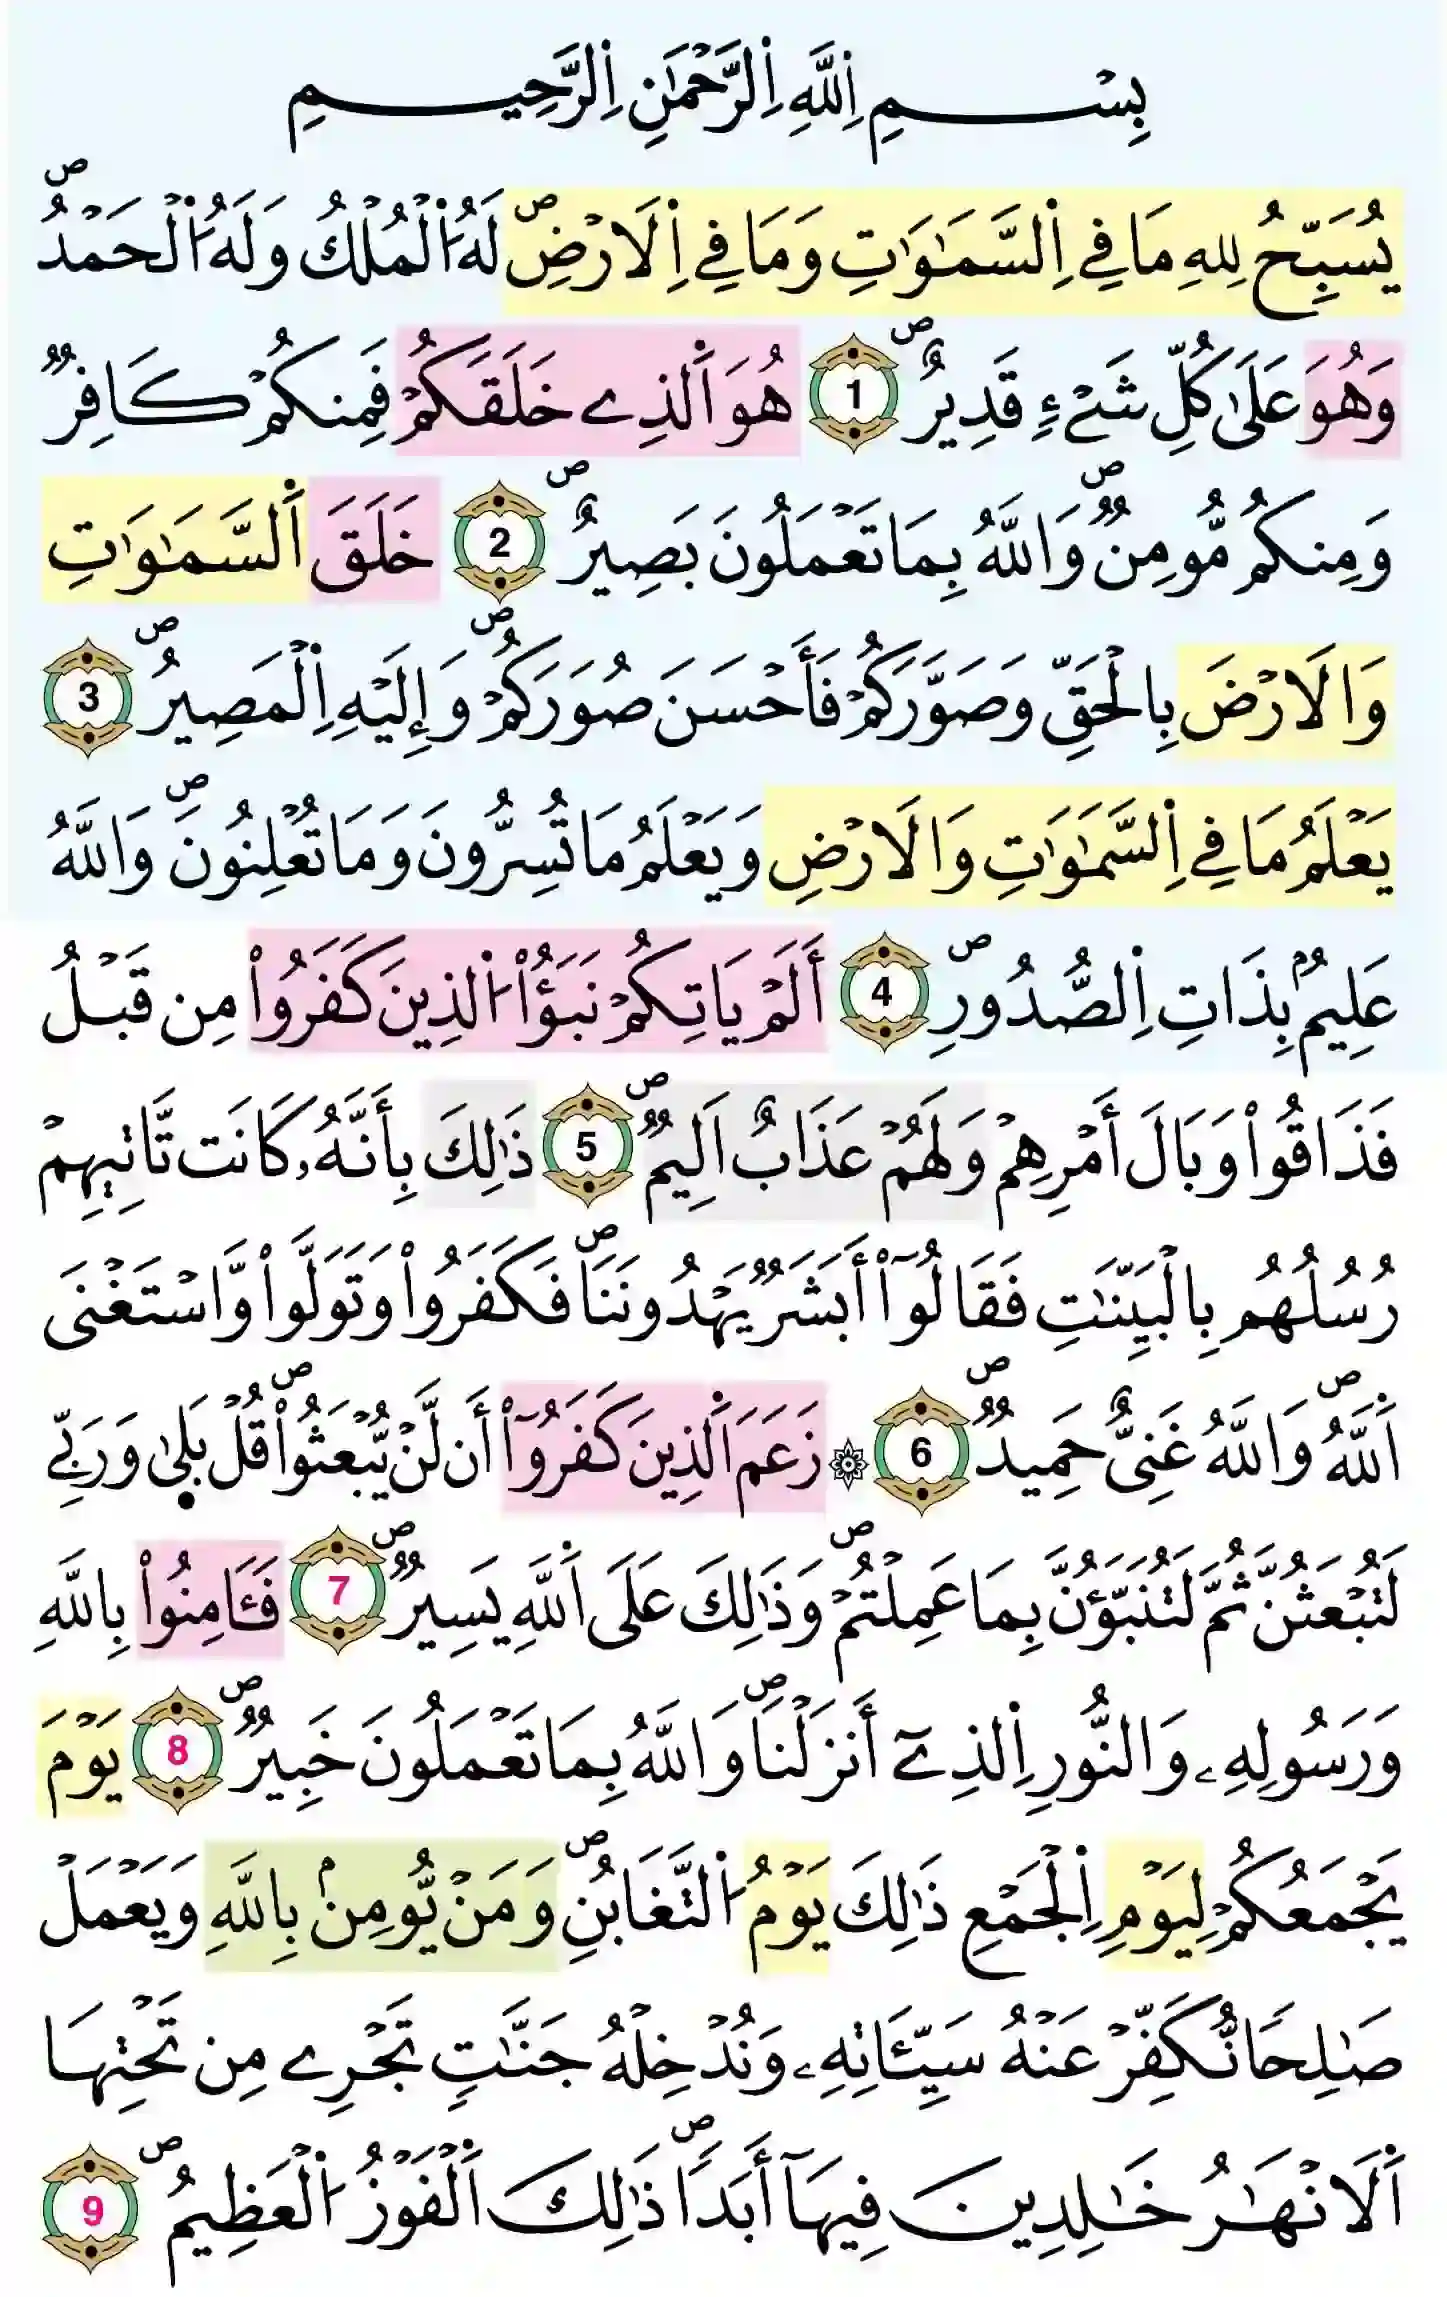 بِسْمِ اِ۬للَّهِ اِ۬لرَّحْمَٰنِ اِ۬لرَّحِيمِ
يُسَبِّحُ لِلهِ مَا فِے اِ۬لسَّمَٰوَٰتِ وَمَا فِے اِ۬لَارْضِۖ لَهُ اُ۬لْمُلْكُ وَلَهُ اُ۬لْحَمْدُۖ
وَهُوَ عَلَىٰ كُلِّ شَےْءٖ قَدِيرٌۖ 1 هُوَ اَ۬لذِے خَلَقَكُمْ فَمِنكُمْ كَافِرٞ
وَمِنكُم مُّومِنٞۖ وَاللَّهُ بِمَا تَعْمَلُونَ بَصِيرٌۖ 2 خَلَقَ اَ۬لسَّمَٰوَٰتِ
وَالَارْضَ بِالْحَقِّ وَصَوَّرَكُمْ فَأَحْسَنَ صُوَرَكُمْۖ وَإِلَيْهِ اِ۬لْمَصِيرُۖ 3
يَعْلَمُ مَا فِے اِ۬لسَّمَٰوَٰتِ وَالَارْضِ وَيَعْلَمُ مَا تُسِرُّونَ وَمَا تُعْلِنُونَۖ وَاللَّهُ
عَلِيمُۢ بِذَاتِ اِ۬لصُّدُورِۖ 4 أَلَمْ يَاتِكُمْ نَبَؤُاْ اُ۬لذِينَ كَفَرُواْ مِن قَبْلُ
فَذَاقُواْ وَبَالَ أَمْرِهِمْ وَلَهُمْ عَذَابٌ اَلِيمٞۖ 5 ذَٰلِكَ بِأَنَّهُۥ كَانَت تَّاتِيهِمْ
رُسُلُهُم بِالْبَيِّنَٰتِ فَقَالُوٓاْ أَبَشَرٞ يَهْدُونَنَاۖ فَكَفَرُواْ وَتَوَلَّواْ وَّاسْتَغْنَى
اَ۬للَّهُۖ وَاللَّهُ غَنِيٌّ حَمِيدٞۖ 6 ۞ زَعَمَ اَ۬لذِينَ كَفَرُوٓاْ أَن لَّنْ يُّبْعَثُواْۖ قُلْ بَل۪ىٰ وَرَبِّے
لَتُبْعَثُنَّ ثُمَّ لَتُنَبَّؤُنَّ بِمَا عَمِلْتُمْۖ وَذَٰلِكَ عَلَى اَ۬للَّهِ يَسِيرٞۖ 7 فَـَٔامِنُواْ بِاللَّهِ
وَرَسُولِهِۦ وَالنُّورِ اِ۬لذِےٓ أَنزَلْنَاۖ وَاللَّهُ بِمَا تَعْمَلُونَ خَبِيرٞۖ 8 يَوْمَ
يَجْمَعُكُمْ لِيَوْمِ اِ۬لْجَمْعِ ذَٰلِكَ يَوْمُ اُ۬لتَّغَابُنِۖ وَمَنْ يُّومِنۢ بِاللَّهِ وَيَعْمَلْ
صَٰلِحاٗ نُّكَفِّرْ عَنْهُ سَيِّـَٔاتِهِۦ وَنُدْخِلْهُ جَنَّٰتٖ تَجْرِے مِن تَحْتِهَا
اَ۬لَانْهَٰرُ خَٰلِدِينَ فِيهَآ أَبَداٗۖ ذَٰلِكَ اَ۬لْفَوْزُ اُ۬لْعَظِيمُۖ 9